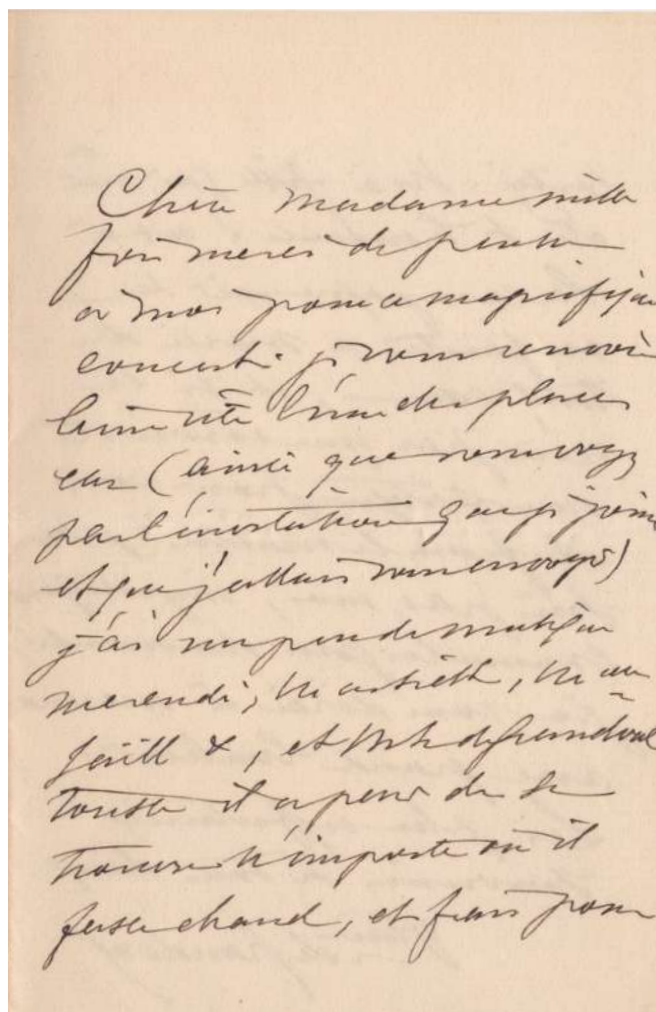 Chère Madame mille
fois merci de penser
à moi pour ce magnifique
concert. je vous renvoie
l'une des places
car (ainsi que vous voyez
par l'invitation que je joins
et que j'allais vous envoyer)
j'ai un peu de musique
mercredi,
et Mr de Grandval
tousse il a peur de se
trouver n'importe où il
fasse chaud, et puis pour